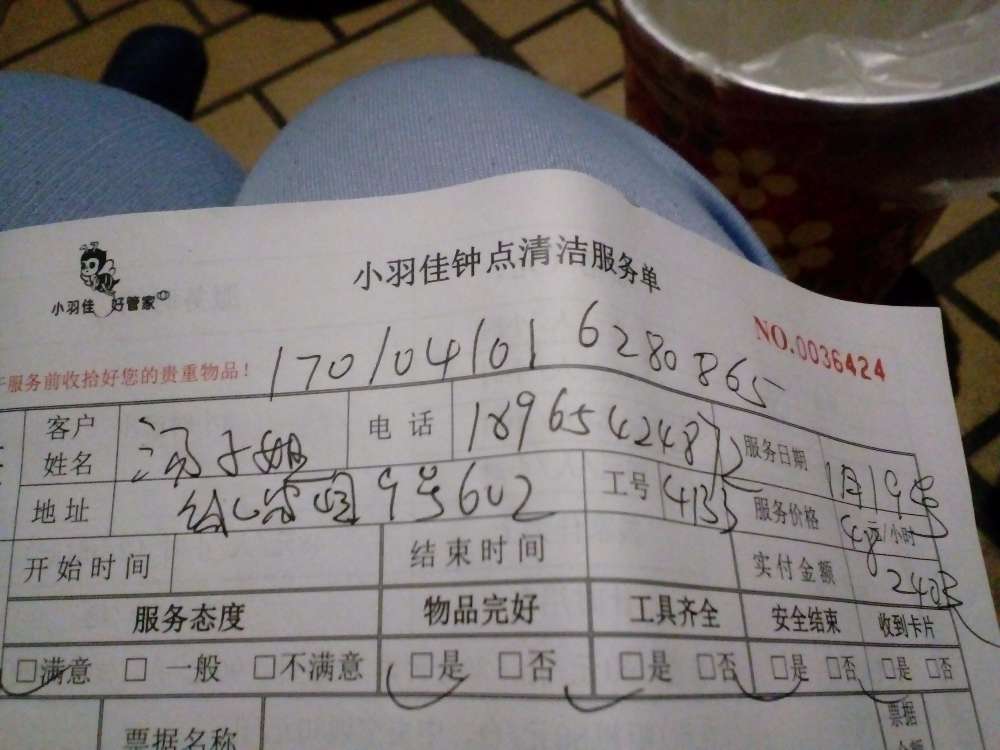 小羽佳 好管家
小羽佳钟点清洁服务单
NO.0036424
服务前收拾好您的贵重物品！
170104101 6280865
客户姓名 汤子姐 电话 18965442487 服务日期 1月19号
地址 9号602 工号 4133 服务价格 48元/小时
开始时间 结束时间 实付金额 240
服务态度 物品完好 工具齐全 安全结束 收到卡片
□满意 □一般 □不满意 □是 □否 □是 □否 □是 □否 □是 □否
票据名称 票据